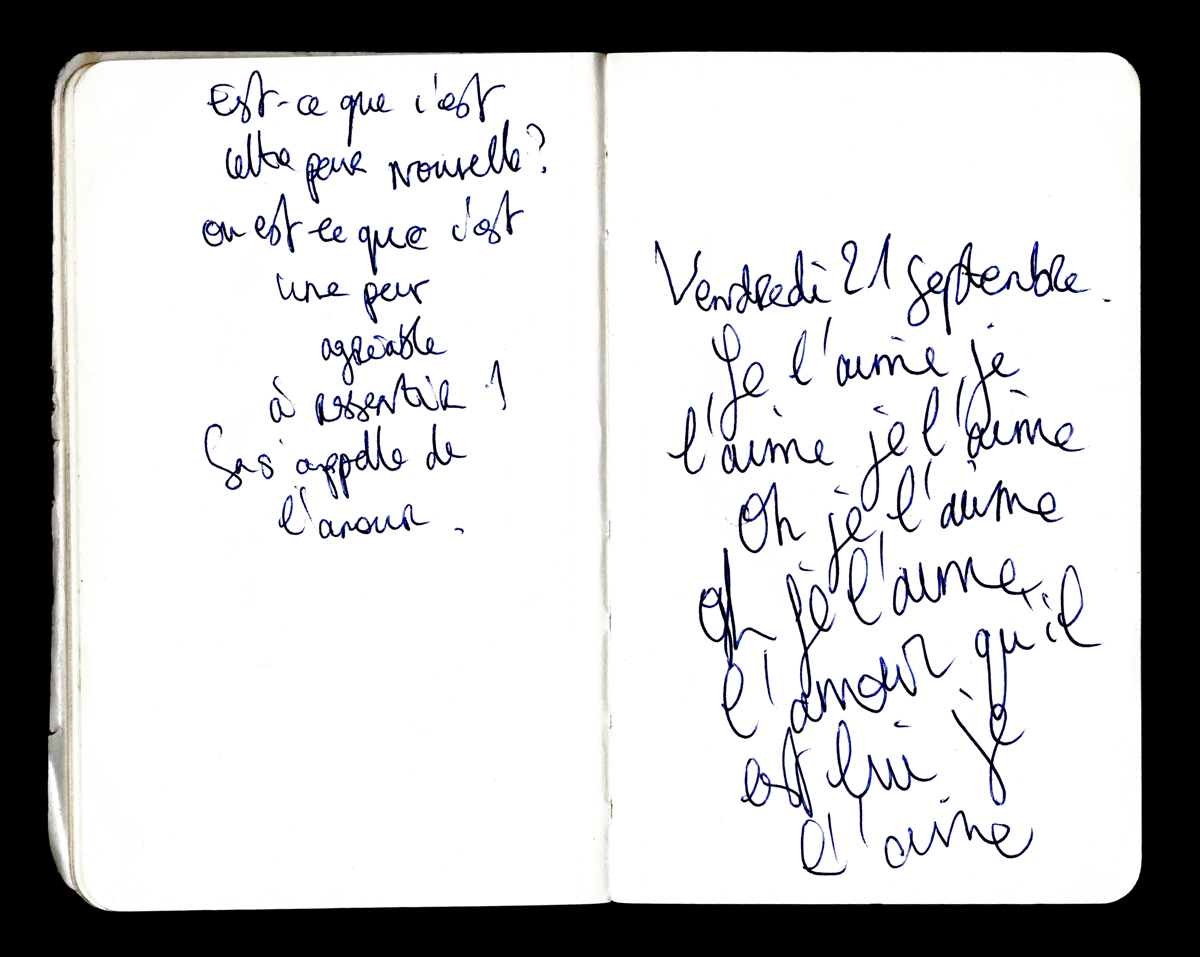 Est-ce que c'est
cette peur nouvelle?
ou est-ce que c'est
une peur
agréable
à ressentir !
Ça s'appelle de
l'amour.
Vendredi 21 septembre.
Je l'aime je
l'aime je l'aime
Oh je l'aime
oh je l'aime,
l'amour qu'il
est lui je
l'aime